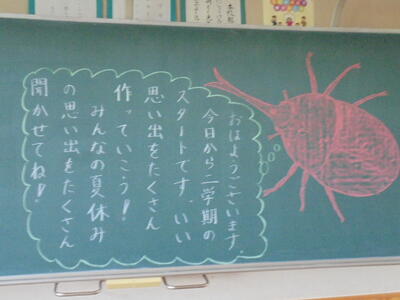 おはようございます。
今日から二学期の
スタートです。いい
思い出をたくさん
作っていこう！
みんなの夏休み
の思い出をたくさん
聞かせてね！